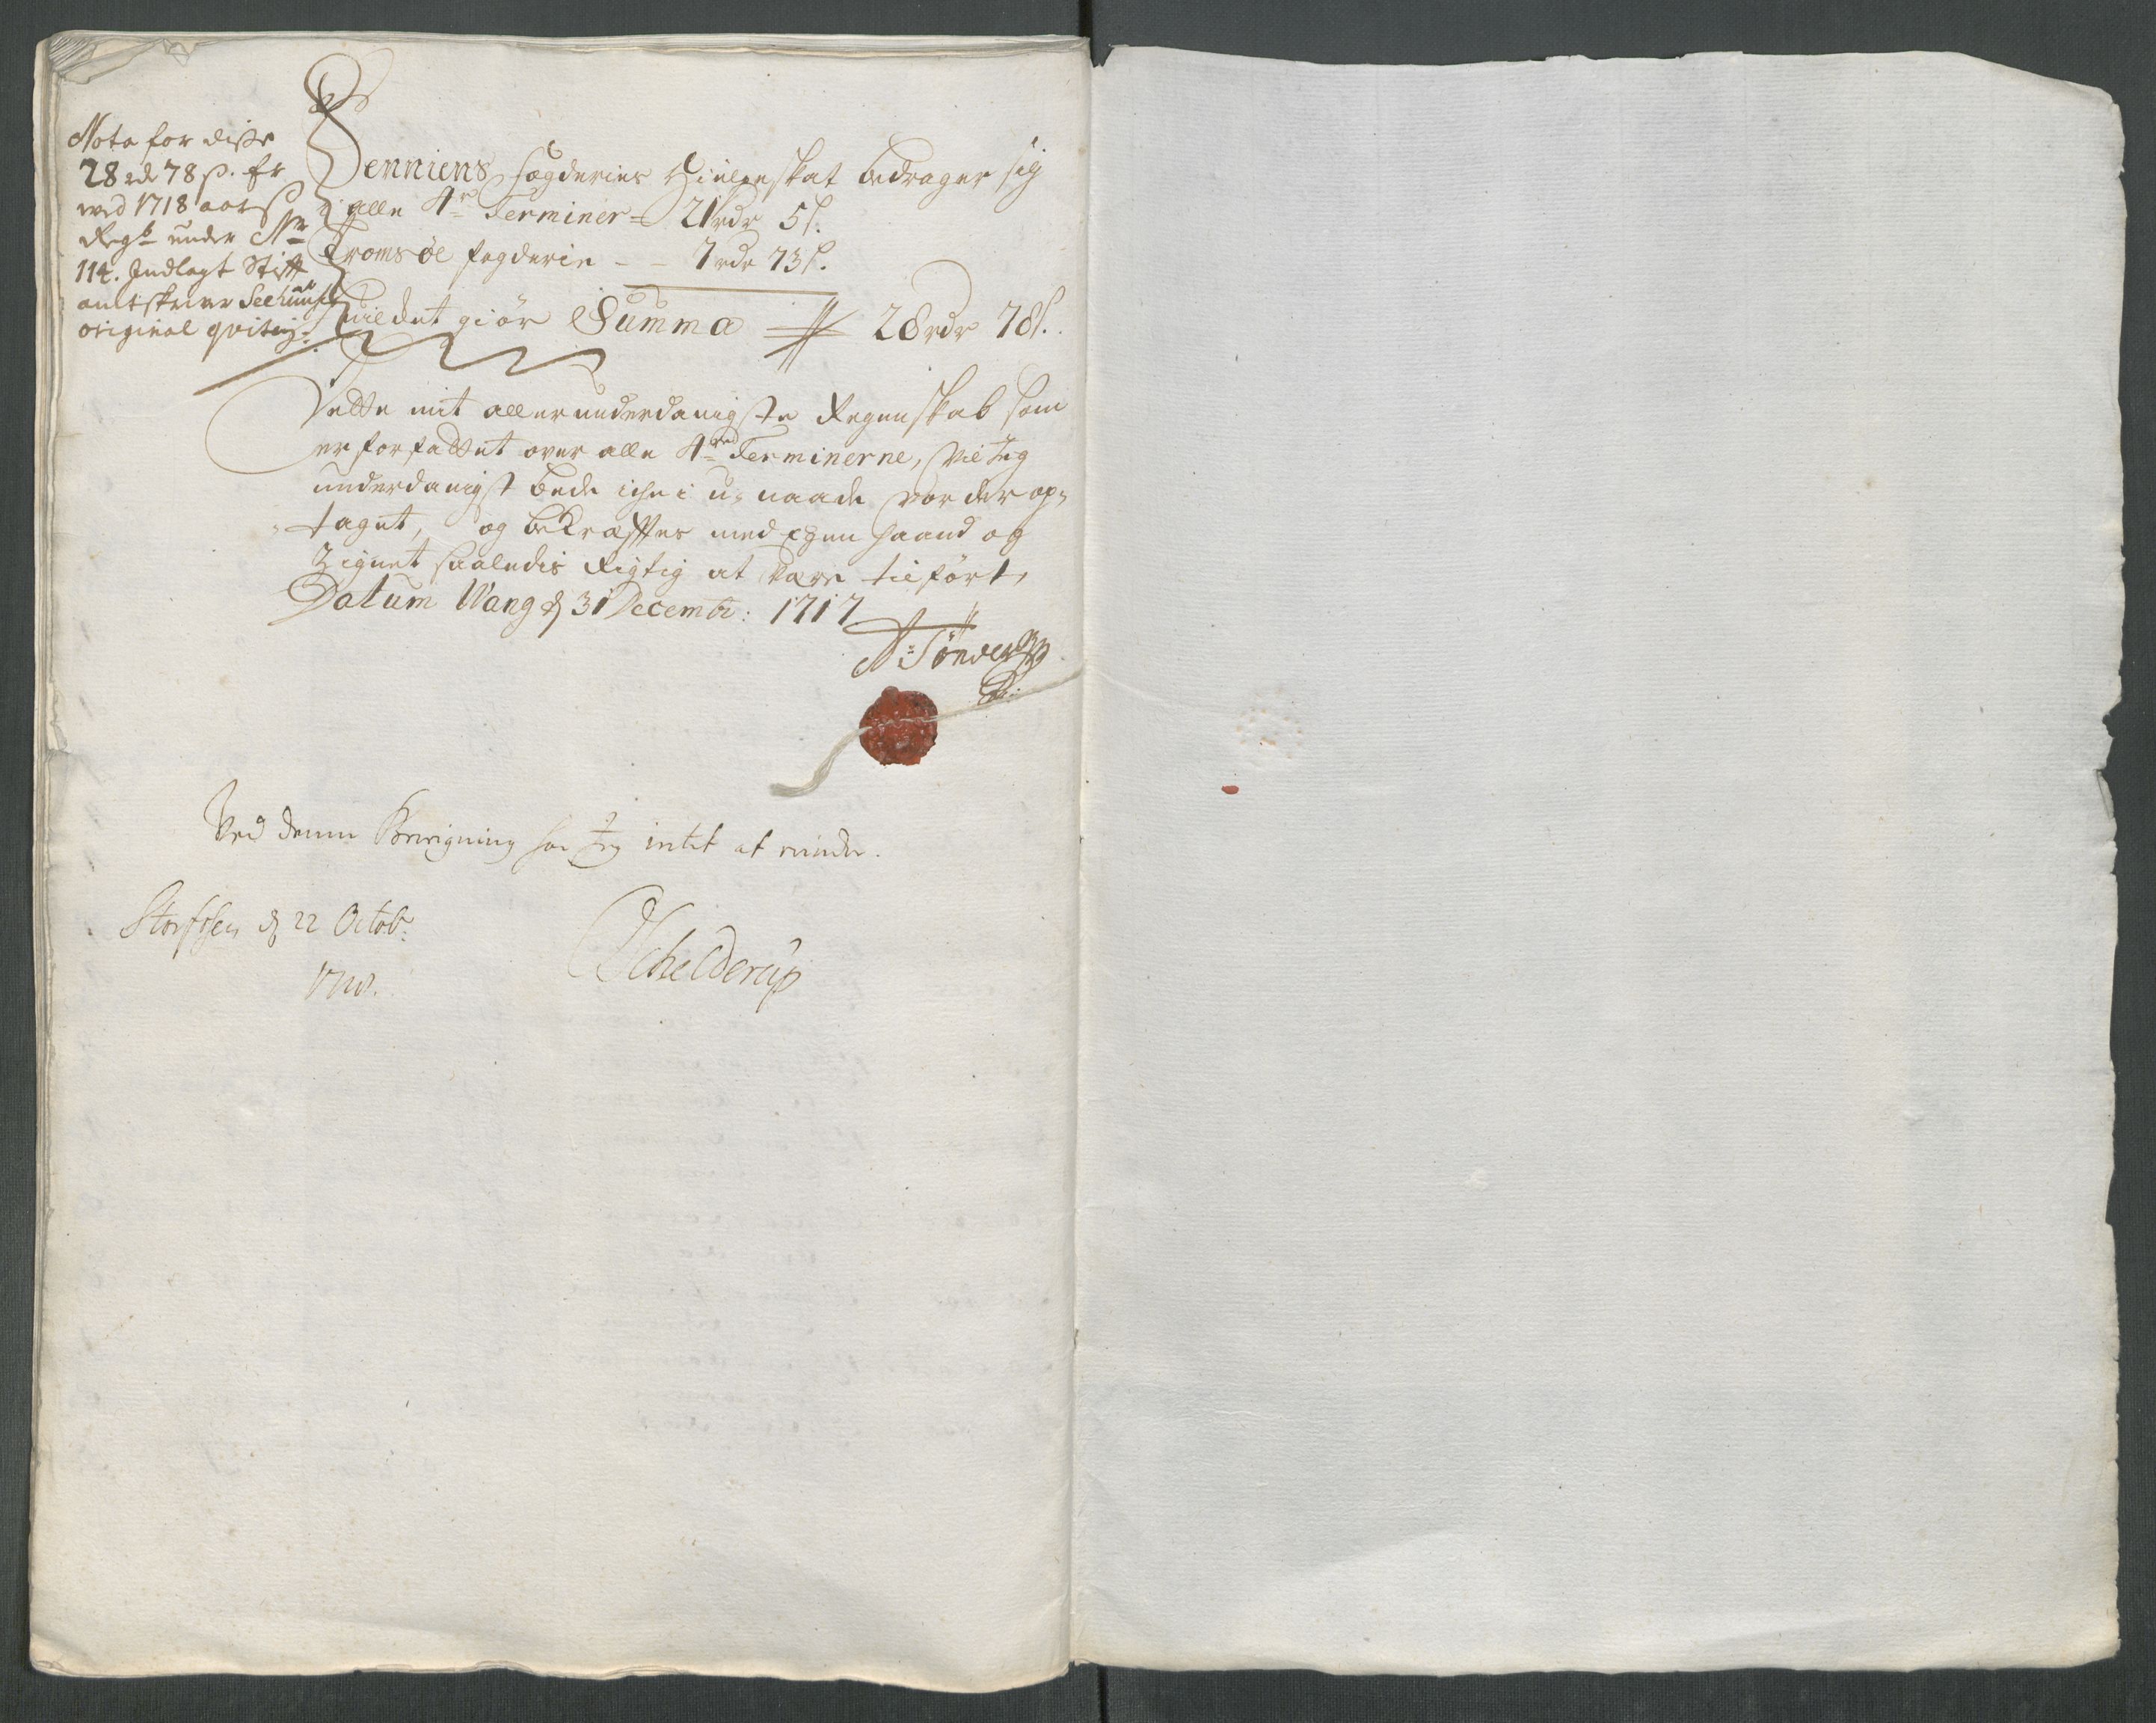 Nota for disse
28 rdr 78 s. Er
ved 1718 aars
Regsk under No
114. Indlagt Stift
amtskriver Seehuusens
original qviterg:
Senniens fogderies Hielpeskat bedrager sig
i alle 4re Terminer - 21 rdr 5 s.
Tromsøe fogderie - - 7 rdr 73 s.
huilcket giør Summa 28 rdr 78 s.
Dette mit allerunderdanigste Regenskab som
er forfattet over alle 4re Terminerne, vil Jeg
underdanigst bede iche i u-naade vorder op-
-taget, og bekræftes med egen haand og
Zignet saaledis Rigtig at være tilført,
Datum Wang d 31 Decembr: 1717
A: Tønder
Ved denne Beregning har Jeg intet at minde.
d 22 Octobr:
1718.
Schelderup